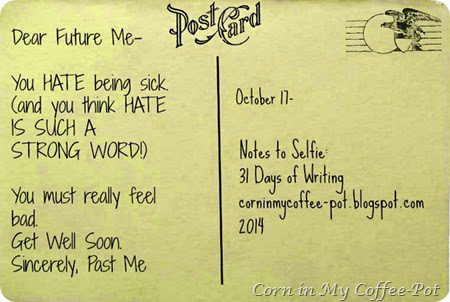 Post Card
Dear Future Me-
You HATE being sick.
(and you think HATE
IS SUCH A
STRONG WORD!)
You must really feel
bad.
Get Well Soon.
Sincerely, Past Me
October 17-
Notes to Selfie:
31 Days of Writing
corninmycoffee-pot.blogspot.com
2014
Corn in My Coffee-Pot